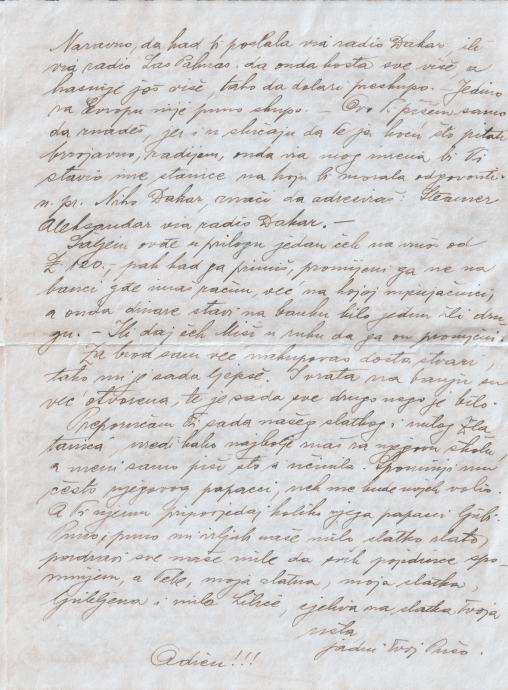 Naravno, da kad bi poslala via radio Dakar, ili
via radio Las Palmas, da onda košta sve više, a
kasnije još više, tako da dolazi preskupo. - Jedino
za Evropu nije puno skupo. - Ovo Ti pišem samo
da znadeš, jer i u slučaju da te ja hoću što pitati
brzojavno, radijem, onda iza mog imena bi Ti
stavio ime stanice na koju bi morala odgovoriti
n. pr. Niko Dakar, znači da adresiraš: Steamer
Aleksandar via radio Dakar. -
Šaljem ovdje u prilogu jedan ček na iznos od
£ 120., pak kad ga primiš, promijeni ga ne na
banci gdje imaš račun, već na kojoj
a onda dinare stavi na banku bilo jednu ili dru-
gu. - Ili daj ček u ruku da ga on promijeni.
Za brod sam već nakupovao dosta stvari,
tako mi je sada ljepše. I vrata na banju su
već otvorena, te je sada sve drugo nego je bilo.
Preporučam Ti sada našeg slatkog i milog Zla-
tanića, uredi kako najbolje znaš za njegovu školu,
a meni samo piši što si učinila. Spominji mu
često njegovog papaci, nek me bude uvijek volio.
A Ti njemu pripovjedaj koliko njega papaci ljubi.
Puno, i puno mi ga naše milo slatko zlato,
pozdravi sve naše mile da svih pojedince spo-
minjem, a Tebe, moja zlatna, moja slatka,
ljubljena i mila cjeliva na slatka Tvoja
usta
jadni Tvoj
Adieu!!!